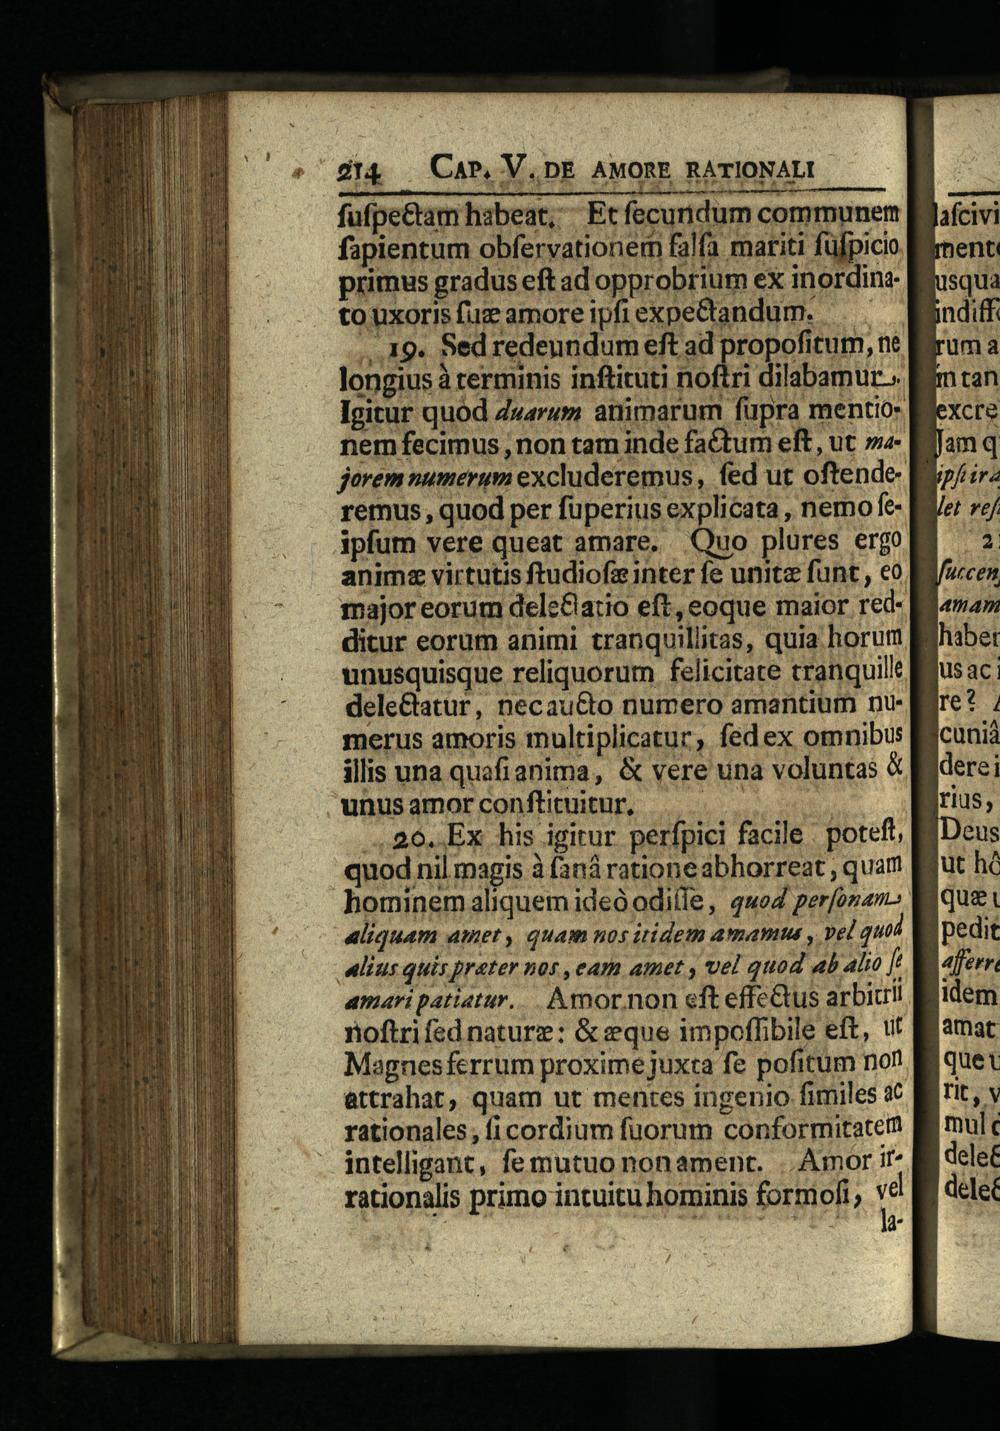 214 CAP. V. DE AMORE RATIONALI
ſuſpectam habeat. Et ſecundum communem
ſapientum obſervationem falſa mariti ſuſpicio
primus gradus eſt ad opprobrium ex inordina-
to uxoris ſuæ amore ipſi expectandum.
19. Sed redeundum eſt ad propoſitum, ne
longius à terminis inſtituti noſtri dilabamur.
Igitur quod duarum animarum ſupra mentio-
nem fecimus, non tam inde factum eſt, ut ma-
jorem numerum excluderemus, ſed ut oſtende-
remus, quod per ſuperius explicata, nemo ſe-
ipſum vere queat amare. Quo plures ergo
animæ virtutis ſtudioſæ inter ſe unitæ ſunt, eo
major eorum delectatio eſt, eoque maior red-
ditur eorum animi tranquillitas, quia horum
unusquisque reliquorum felicitate tranquille
delectatur, nec aucto numero amantium nu-
merus amoris multiplicatur, ſed ex omnibus
illis una quaſi anima, & vere una voluntas &
unus amor conſtituitur.
20. Ex his igitur perſpici facile poteſt,
quod nil magis à ſanâ ratione abhorreat, quam
hominem aliquem ideò odiſſe, quod perſonam
aliquam amet, quam nos itidem amamus, vel quod
alius quis præter nos, eam amet, vel quod ab alio ſe
amari patiatur. Amor non eſt effectus arbitrii
noſtri ſed naturæ: & æque impoſſibile eſt, ut
Magnes ferrum proxime juxta ſe poſitum non
attrahat, quam ut mentes ingenio ſimiles ac
rationales, ſi cordium ſuorum conformitatem
intelligant, ſe mutuo non ament. Amor ir-
rationalis primo intuitu hominis formoſi, vel
la-
laſcivi
usqua
rum a
in tan
excre
Jam q
let
amam
haber
us ac
re?
cuniâ
dere
rius,
Deus
ut
quæ
pedit
idem
amat
que
rit, v
mul